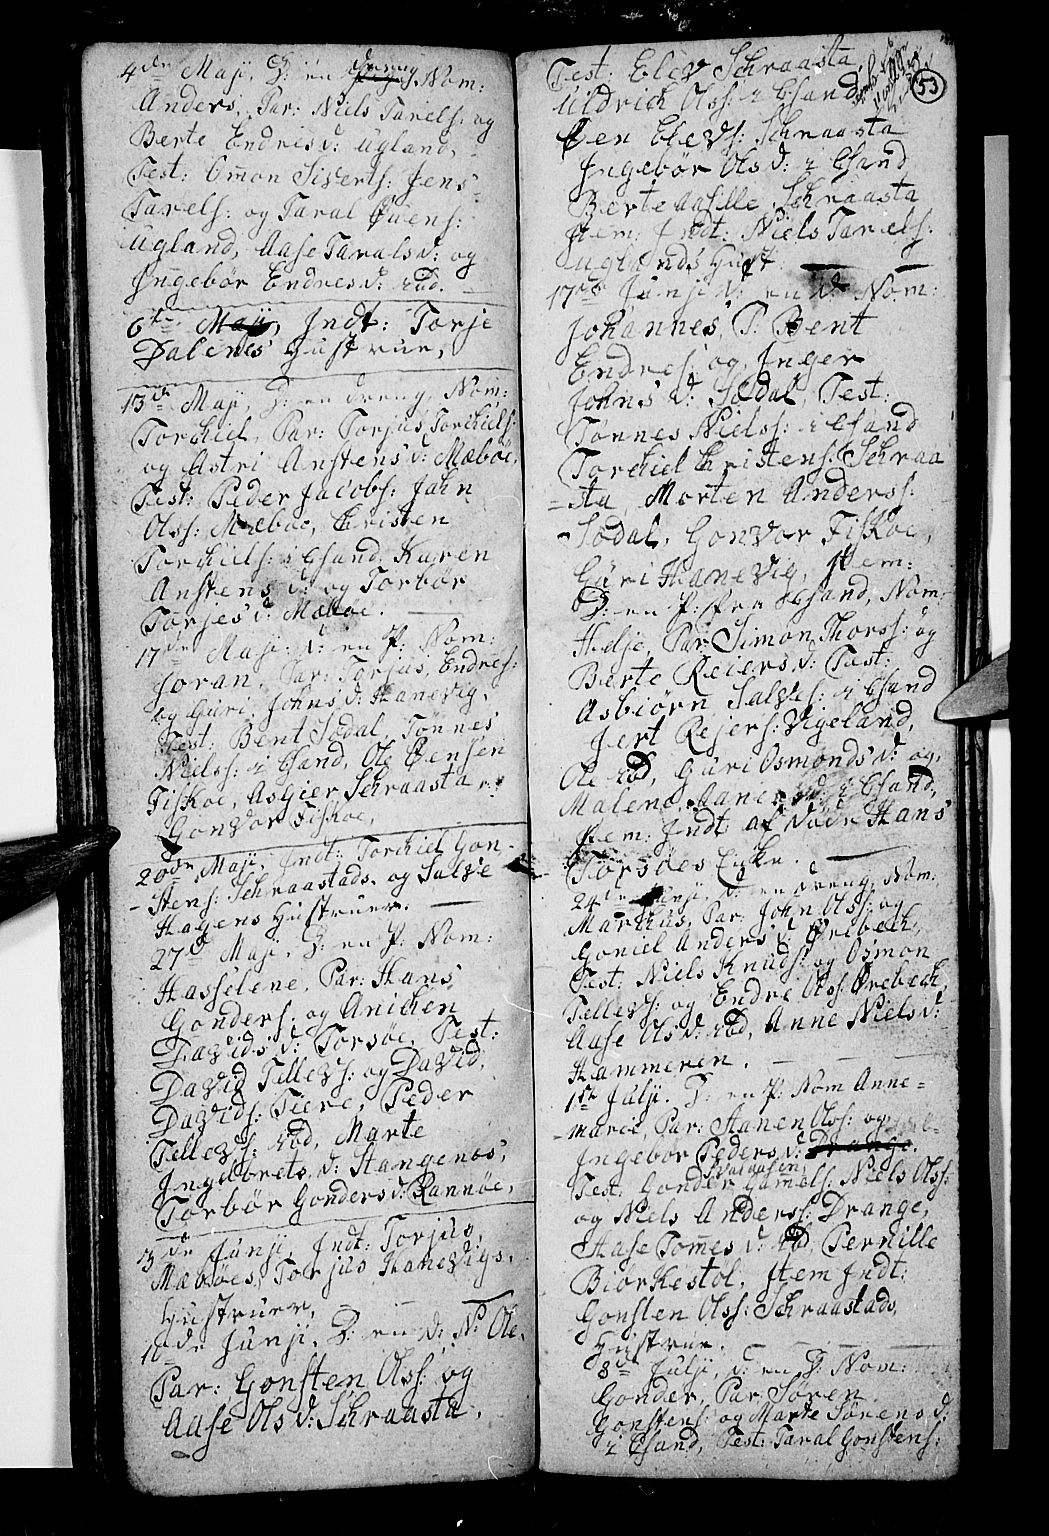 4de Maji, D: en dreng, Nom:
Anders, Par: Niels Tarels: og
Berte Endres d: Ugland,
Test: Omon Siverts: Jens
Tarels: og Taral Øuens:
Ugland, Aase Tarals d: og
Ingebor Endres d: ibd.
6te Maji, Indt: Torje
Dalenes Hustrue,
13de Maji, D: en dreng, Nom:
Torchiel, Par: Torjus Torchiels:
og Astri Anstens d: Mæboe,
Test: Peder Jacobs: Jahn
Olss: Mæboe, Christen
Torchiels: i Csand, Karen
Anstens d: og Torbør
Torjes d: Mæboe.
17de Maji: d: en P: Nom:
Joran, Par: Torjus Endres:
og Guri Johns d: Hanevig,
Test: Bent Sødal, Tønnes
Nielss: i Csand, Ole Øensen
Fiskoe, Asgier Schraasta
Gonvor Fiskoe,
20de Maji, Indt: Torchiel Gon-
-stens: Schraastads, og Salve
Hagens Hustruer.
27de Maji, D: en P: Nom:
Hasselene, Par: Hans
Gonders: og Anichen
Davids d: Torsøe, Test:
David Tellevs: og David
Davids: Tiere, Peder
Tellevs: ibd, Marte
Ingebrets d: Stangenes,
Torbør Gonders d: Rannøe,
13de Junji, Indt: Torjus
Mæbøes, Torjus Hanevigs,
Hustruer,
10de Junji, D: en d: N: Ole,
Par: Gonsten Olss: og
Aase Ols d: Schraasta,
53
Test: Elev Schraasta,
Uldrich Olss: i Csand
Øen Elevs: Schraasta
Ingebør Ols d: i Csand
Berte Aasille Schraasta
Item: Indt: Niels Tarels:
Uglands Hust:
17de Junji d: en d: Nom:
Johannes, P: Bent
Endres: og Inger
Johns d: Sødal, Test:
Tønnes Nielss: i Csand
Torchiel Christens: Schraa
-sta, Morten Anderss:
Sødal, Gonvor Fiskoe,
Guri Hanevig, Item:
D: en P: fra Csand, Nom:
Helje, Par Simon Thorss: og
Berte Reiers d: Test:
Asbiørn Salves: i Csand
Jert Rejers: Vigeland,
Ole ibd, Guri Osmonds d: og
Malene Aaners d: i Csand,
Item: Indt: af Hans
Torsøes Enke.
24de Junji, D: en dreng, Nom:
Marchus, Par: John Olss: og
Goniel Anders d: Ørebech,
Test: Niels Knuds: og Osmon
Tellevs: og Endre Olss: Ørebech,
Aase Ols d: ibd, Anne Niels d:
Hammeren.
1ste Julji. D: en P: Nom Anne-
-marie, Par: Stanen Olss: og
Ingebor Peders d: Drange.
Test: Gonder Gamels: Niels Olss:
og Niels Anderss: Drange,
Aase Tomes d: ibd, Pernille
Biørkestøl, Item Indt:
Gonsten Olss: Schraastads
Hustrue.
8de Julji, d: en D: Nom:
Gonder, Par Søren
Gonstens: og Marte Sørens d:
i Csand, Test: Taral Gonstens: